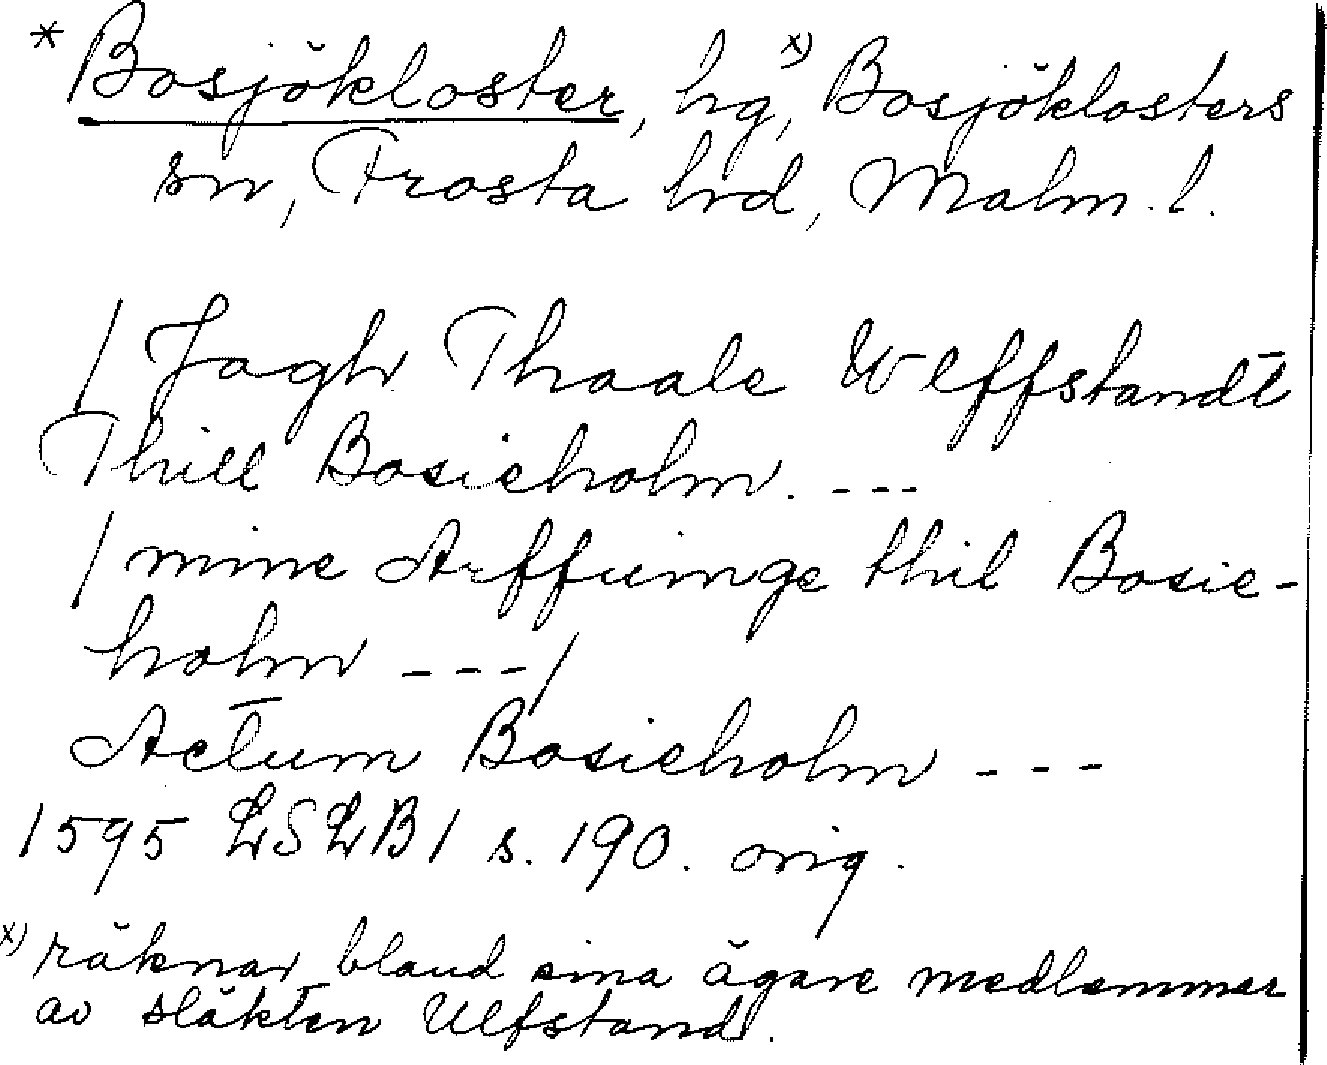 * Bosjökloster, hg,x) Bosjöklosters
sn, Frosta hd, Malm. l.
/ Jagh Thaale Wlffstandt
Thill Bosieholm. ---
/ mine Arffuinge thil Bosie-
holm ---/
Actum Bosieholm ---
1595 LSLB1 s. 190. orig.
x) räknar bland sina ägare medlemmar
av släkten Ulfstand.